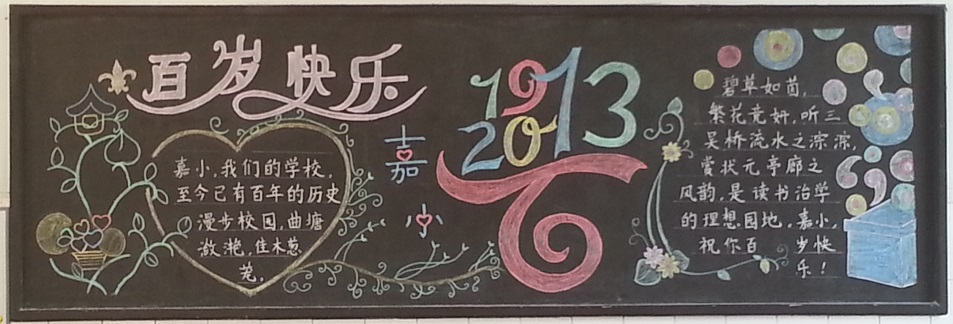 百岁快乐
嘉小,我们的学校,
至今已有百年的历史
漫步校园,曲塘
潋滟,佳木葱
茏。
嘉
小
1913
2013
碧草如茵,
繁花竞妍,听三
吴桥流水之淙淙,
赏状元亭廊之
风韵,是读书治学
的理想园地,嘉小,
祝你百岁快
乐!